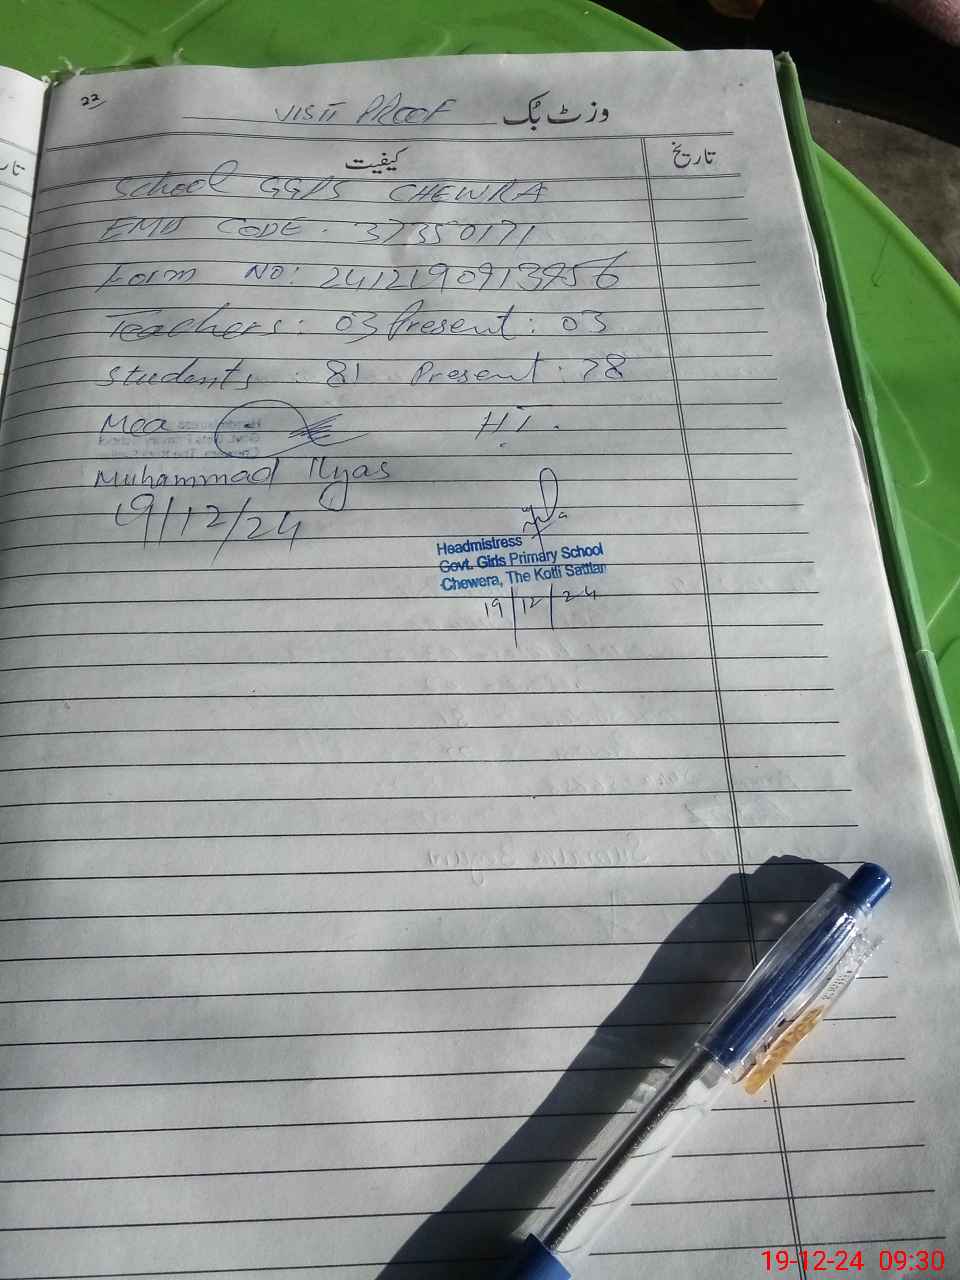 22
VISIT PROOF وزٹ بُک
کیفیت تاریخ
School GGPS CHEWRA
EMIS CODE. 37350171
Form NO: 2412190913956
Teachers: 03 Present: 03
Students: 81 Present: 78
Mea H.T.
Muhammad Ilyas
19/12/24
Headmistress
Govt. Girls Primary School
Chewera, The Kotli Sattian
19/12/24
19-12-24 09:30